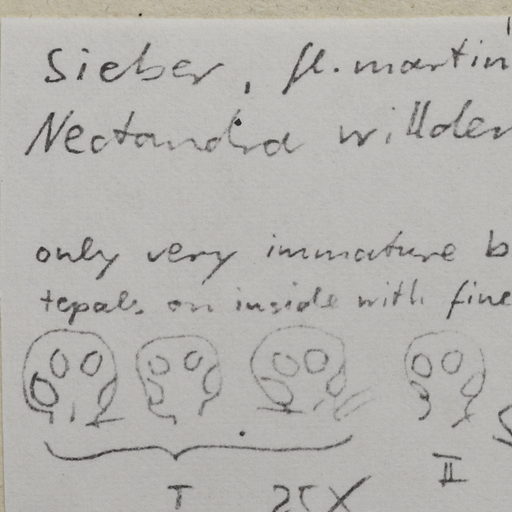 Sieber, fl. martin
Nectandra willden
only very immature b
tepals on inside with fine
I 25X II